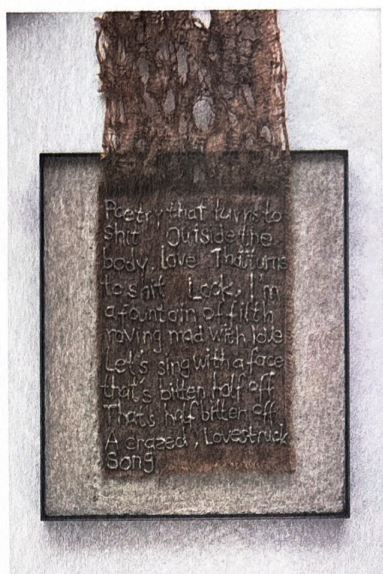 Poetry that turns to
shit Outside the
body, love That turns
to shit Look, I'm
a fountain of filth
roving mad with love
Let's sing with a face
that's bitten half off
That's half bitten off
A crazed, Lovestruck
Song